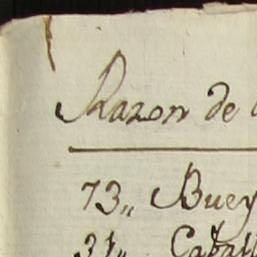 Razon de
73,, Buey
31,, Caball